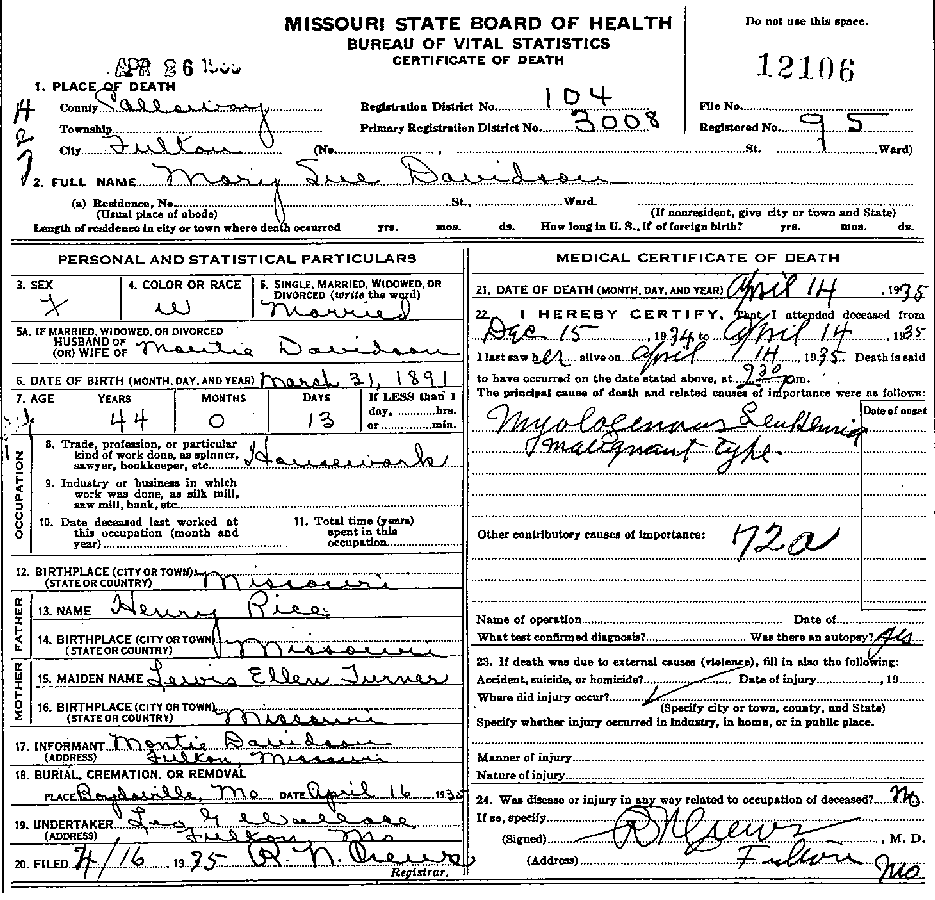 MISSOURI STATE BOARD OF HEALTH
BUREAU OF VITAL STATISTICS
CERTIFICATE OF DEATH
Do not use this space.
12106
APR 26
1. PLACE OF DEATH
County Callaway
Township
City Fulton (No. , St. Ward)
Registration District No. 104
Primary Registration District No. 3008
File No.
Registered No. 95
2. FULL NAME Mary Sue Davidson
(a) Residence, No. St., Ward.
(Usual place of abode) (If nonresident, give city or town and State)
Length of residence in city or town where death occurred yrs. mos. ds. How long in U. S., if of foreign birth? yrs. mos. ds.
PERSONAL AND STATISTICAL PARTICULARS
3. SEX
4. COLOR OR RACE W
5. SINGLE, MARRIED, WIDOWED, OR DIVORCED (write the word)
Married
5A. IF MARRIED, WIDOWED, OR DIVORCED
HUSBAND OF
(OR) WIFE OF Montie Davidson
6. DATE OF BIRTH (MONTH, DAY, AND YEAR) March 31, 1891
7. AGE YEARS MONTHS DAYS If LESS than 1
day, hrs.
or min.
44 0 13
OCCUPATION
8. Trade, profession, or particular
kind of work done, as spinner,
sawyer, bookkeeper, etc. Housework
9. Industry or business in which
work was done, as silk mill,
saw mill, bank, etc.
10. Date deceased last worked at
this occupation (month and
year)
11. Total time (years)
spent in this
occupation
12. BIRTHPLACE (CITY OR TOWN) Missouri
(STATE OR COUNTRY)
FATHER
13. NAME Henry Rice
14. BIRTHPLACE (CITY OR TOWN) Missouri
(STATE OR COUNTRY)
MOTHER
15. MAIDEN NAME Lewis Ellen Turner
16. BIRTHPLACE (CITY OR TOWN) Missouri
(STATE OR COUNTRY)
17. INFORMANT Montie Davidson
(ADDRESS) Fulton, Missouri
18. BURIAL, CREMATION, OR REMOVAL
PLACE Boydsville, Mo DATE April 16 1935
19. UNDERTAKER Wallace
(ADDRESS) Fulton Mo
20. FILED 4/16 1935 R. N. Crews
Registrar.
MEDICAL CERTIFICATE OF DEATH
21. DATE OF DEATH (MONTH, DAY, AND YEAR) April 14, 1935
22. I HEREBY CERTIFY, That I attended deceased from
Dec 15, 1934 to April 14, 1935
I last saw her alive on April 14, 1935. Death is said
to have occurred on the date stated above, at 9:30 p.m.
The principal cause of death and related causes of importance were as follows:
Date of onset
Myologenous Leukemia
malignant type.
Other contributory causes of importance:
72a
Name of operation Date of
What test confirmed diagnosis? Was there an autopsy?
23. If death was due to external causes (violence), fill in also the following:
Accident, suicide, or homicide? Date of injury , 19
Where did injury occur?
(Specify city or town, county, and State)
Specify whether injury occurred in industry, in home, or in public place.
Manner of injury
Nature of injury
24. Was disease or injury in any way related to occupation of deceased? No
If so, specify
(Signed) R N Crews, M. D.
(Address) Fulton Mo